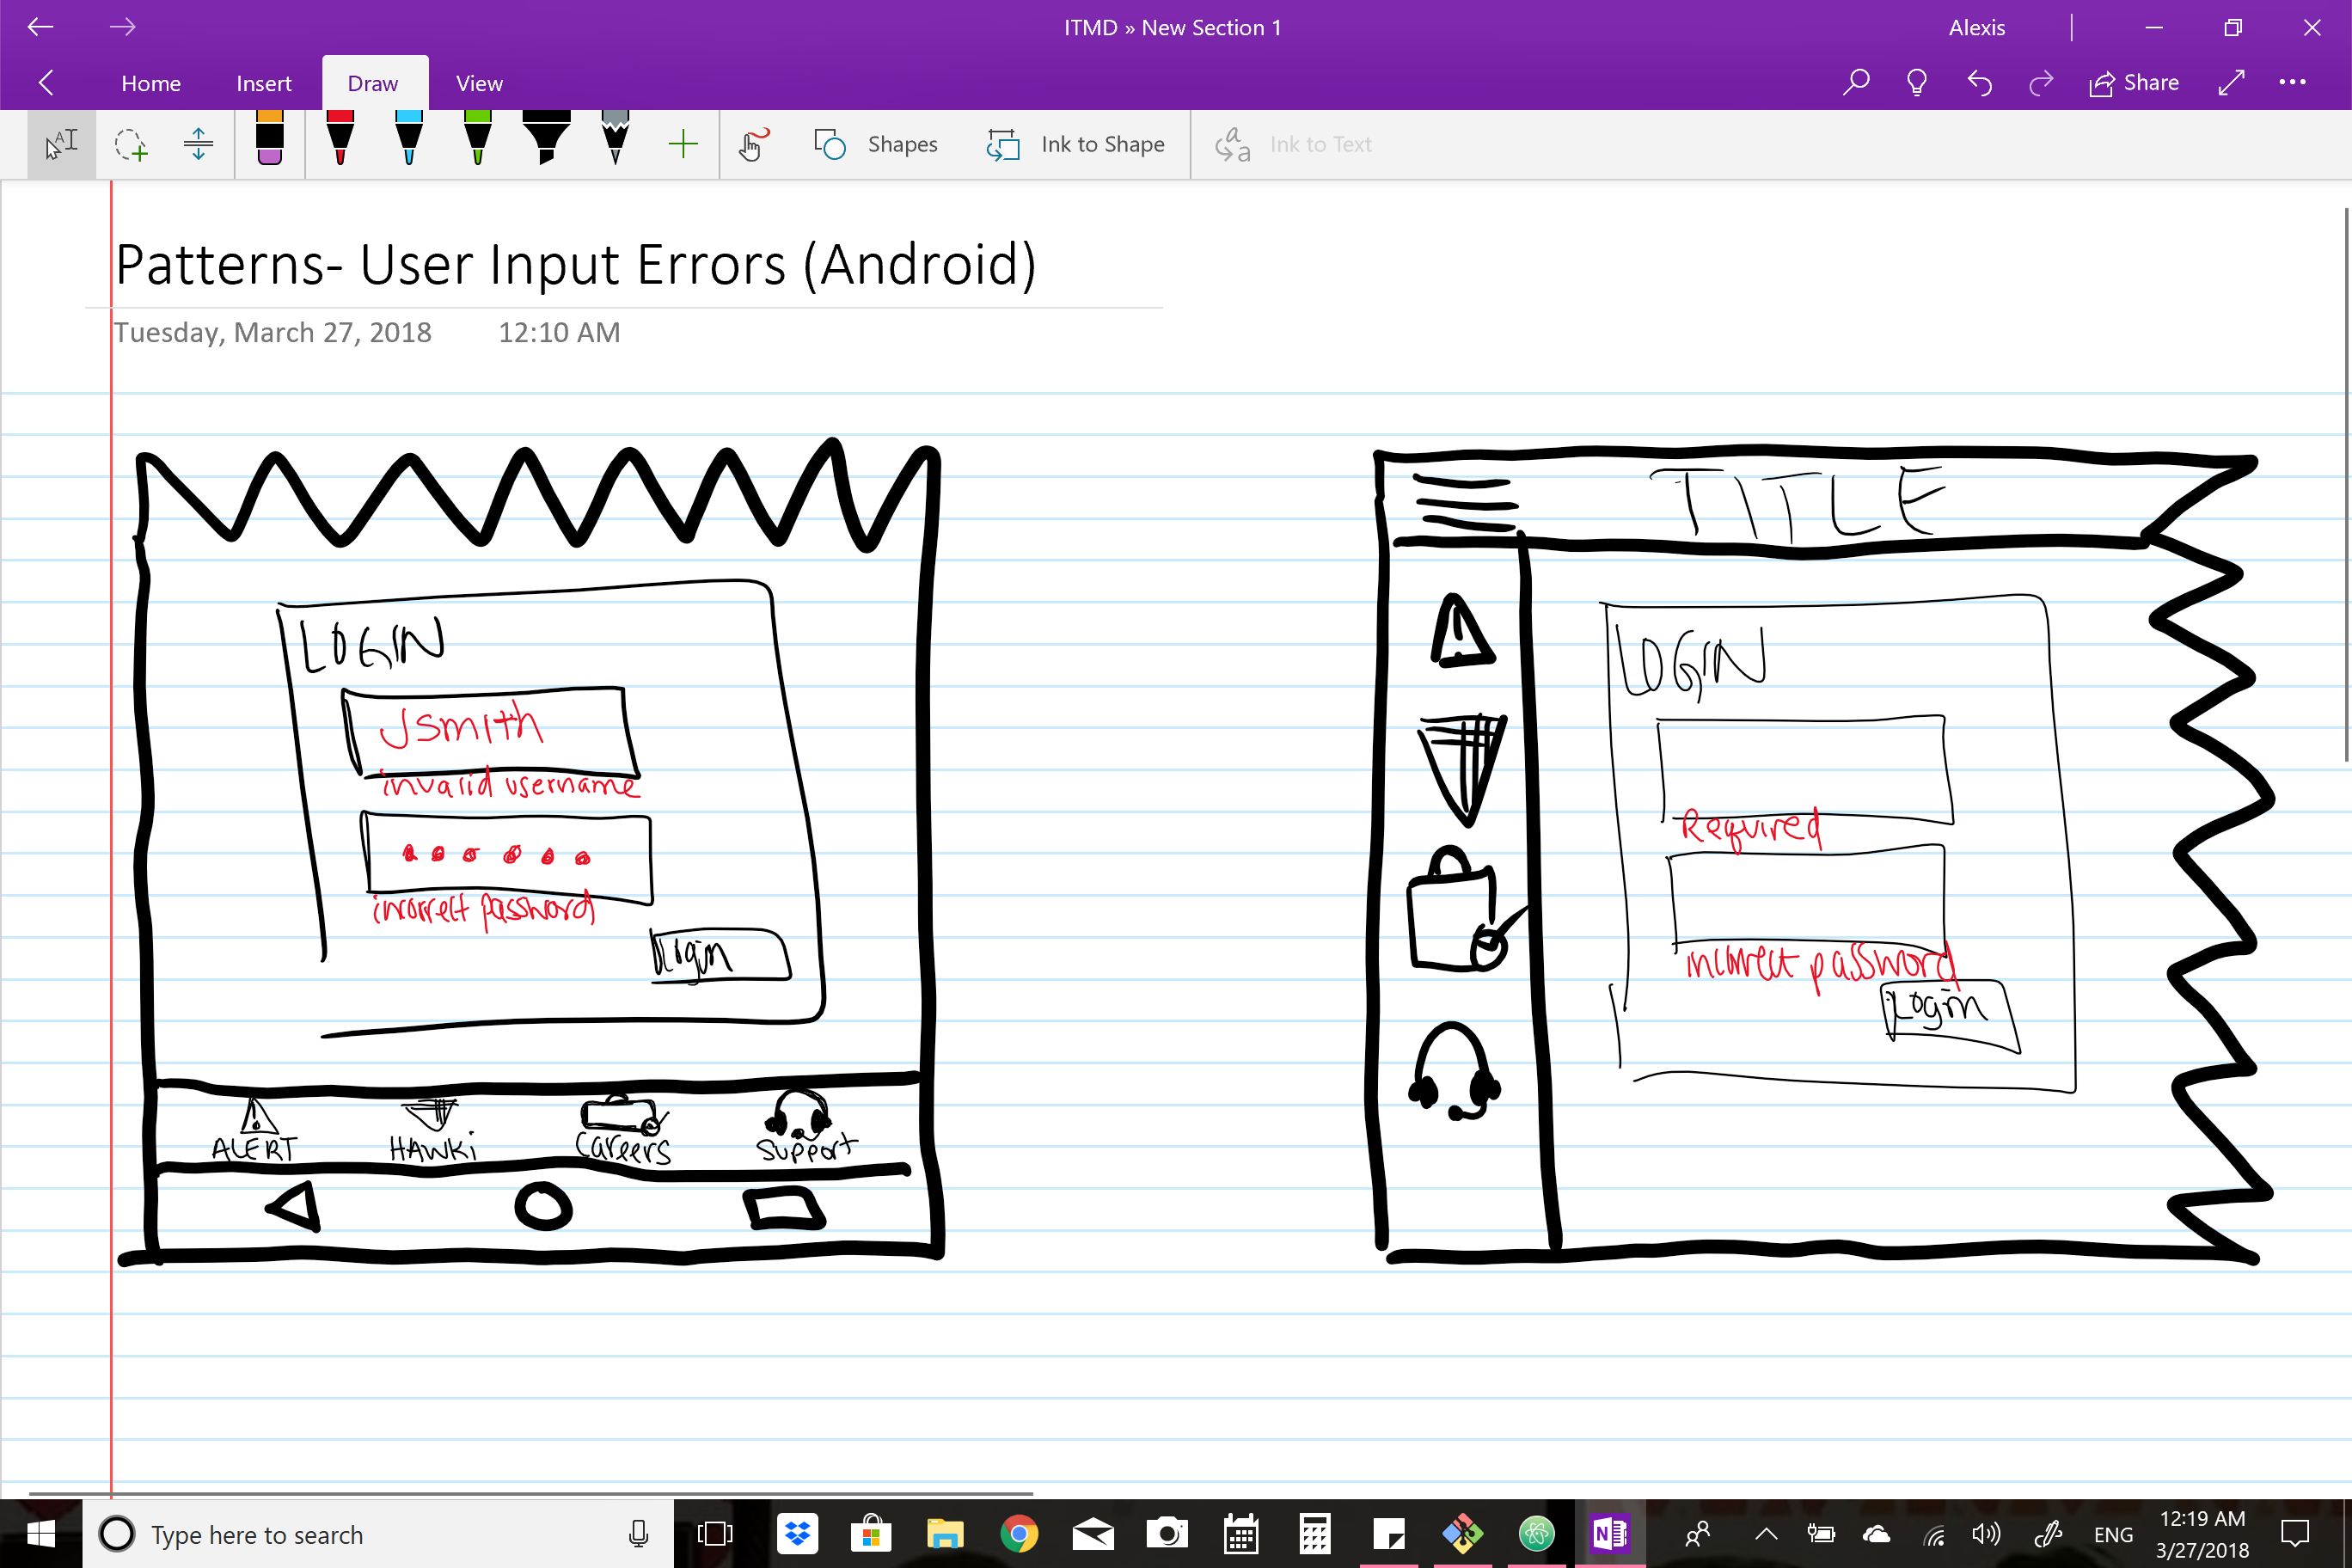 ITMD » New Section 1
Alexis
Home Insert Draw View
Share
Shapes
Ink to Shape
Ink to Text
Patterns- User Input Errors (Android)
Tuesday, March 27, 2018 12:10 AM
LOGIN
Jsmith
invalid username
incorrect password
Login
ALERT HAWKi Careers Support
TITLE
LOGIN
Required
incorrect password
Login
Type here to search
ENG
12:19 AM
3/27/2018